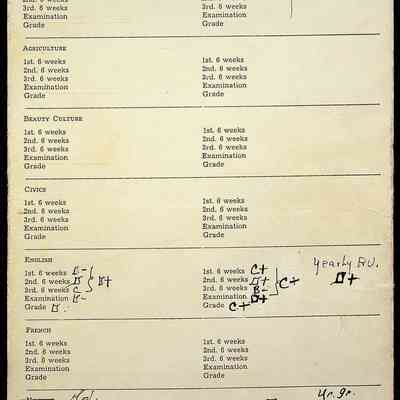 2nd. 6 weeks 2nd. 6 weeks
3rd. 6 weeks 3rd. 6 weeks
Examination Examination
Grade Grade
AGRICULTURE
1st. 6 weeks 1st. 6 weeks
2nd. 6 weeks 2nd. 6 weeks
3rd. 6 weeks 3rd. 6 weeks
Examination Examination
Grade Grade
BEAUTY CULTURE
1st. 6 weeks 1st. 6 weeks
2nd. 6 weeks 2nd. 6 weeks
3rd. 6 weeks 3rd. 6 weeks
Examination Examination
Grade Grade
CIVICS
1st. 6 weeks 1st. 6 weeks
2nd. 6 weeks 2nd. 6 weeks
3rd. 6 weeks 3rd. 6 weeks
Examination Examination
Grade Grade
ENGLISH yearly
1st. 6 weeks B- 1st. 6 weeks C+
2nd. 6 weeks B B+ 2nd. 6 weeks D+ C+ D+
3rd. 6 weeks C 3rd. 6 weeks B-
Examination B- Examination D+
Grade B Grade C+
FRENCH
1st. 6 weeks 1st. 6 weeks
2nd. 6 weeks 2nd. 6 weeks
3rd. 6 weeks 3rd. 6 weeks
Examination Examination
Grade Grade